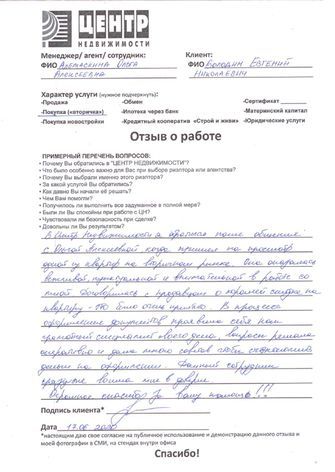 ЦЕНТР
НЕДВИЖИМОСТИ
Менеджер/ агент/ сотрудник:
Клиент:
ФИО Алемаскина Ольга
Алексеевна
ФИО Володин Евгений
Николаевич
Характер услуги (нужное подчеркнуть):
-Продажа -Обмен -Сертификат
-Покупка «вторичка») -Ипотека через банк -Материнский капитал
-Покупка новостройки -Кредитный кооператив «Строй и живи» -Юридические услуги
Отзыв о работе
ПРИМЕРНЫЙ ПЕРЕЧЕНЬ ВОПРОСОВ:
• Почему Вы обратились в "ЦЕНТР НЕДВИЖИМОСТИ"?
• Что было особенно важно для Вас при выборе риэлтора или агентства?
• Почему Вы выбрали именно этого риэлтора?
• За какой услугой Вы обратились?
• Как давно Вы начали её решать?
• Чем Вам помогли?
• Получилось ли выполнить все задуманное в полной мере?
• Были ли Вы спокойны при работе с ЦН?
• Чувствовали ли безопасность при сделке?
• Довольны ли Вы результатом?
В Центр Недвижимости я обратился после общения
с Ольгой Алексеевной когда пришел на просмотр
одной из квартир на вторичном рынке. Она оказалась
вежливой, пунктуальной и внимательной в работе со
мной. Договорилась с продавцом о хорошей скидке на
квартиру - это было очень приятно. В процессе
оформления документов проявила себя как
грамотный специалист своего дела, вопросы решала
оперативно и дала много советов чтобы сэкономить
деньги на оформлении. Данный сотрудник
сразу же вошла мне в доверие.
Огромное спасибо за Вашу помощь!!!
Подпись клиента*
Дата 17.06.2020
*настоящим даю свое согласие на публичное использование и демонстрацию данного отзыва и
моей фотографии в СМИ, на стендах внутри офиса
Спасибо!